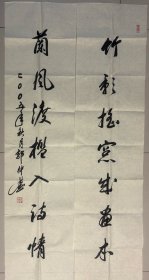 竹影摇窗成画本
兰风渡槛入诗情
二〇〇五年秋月